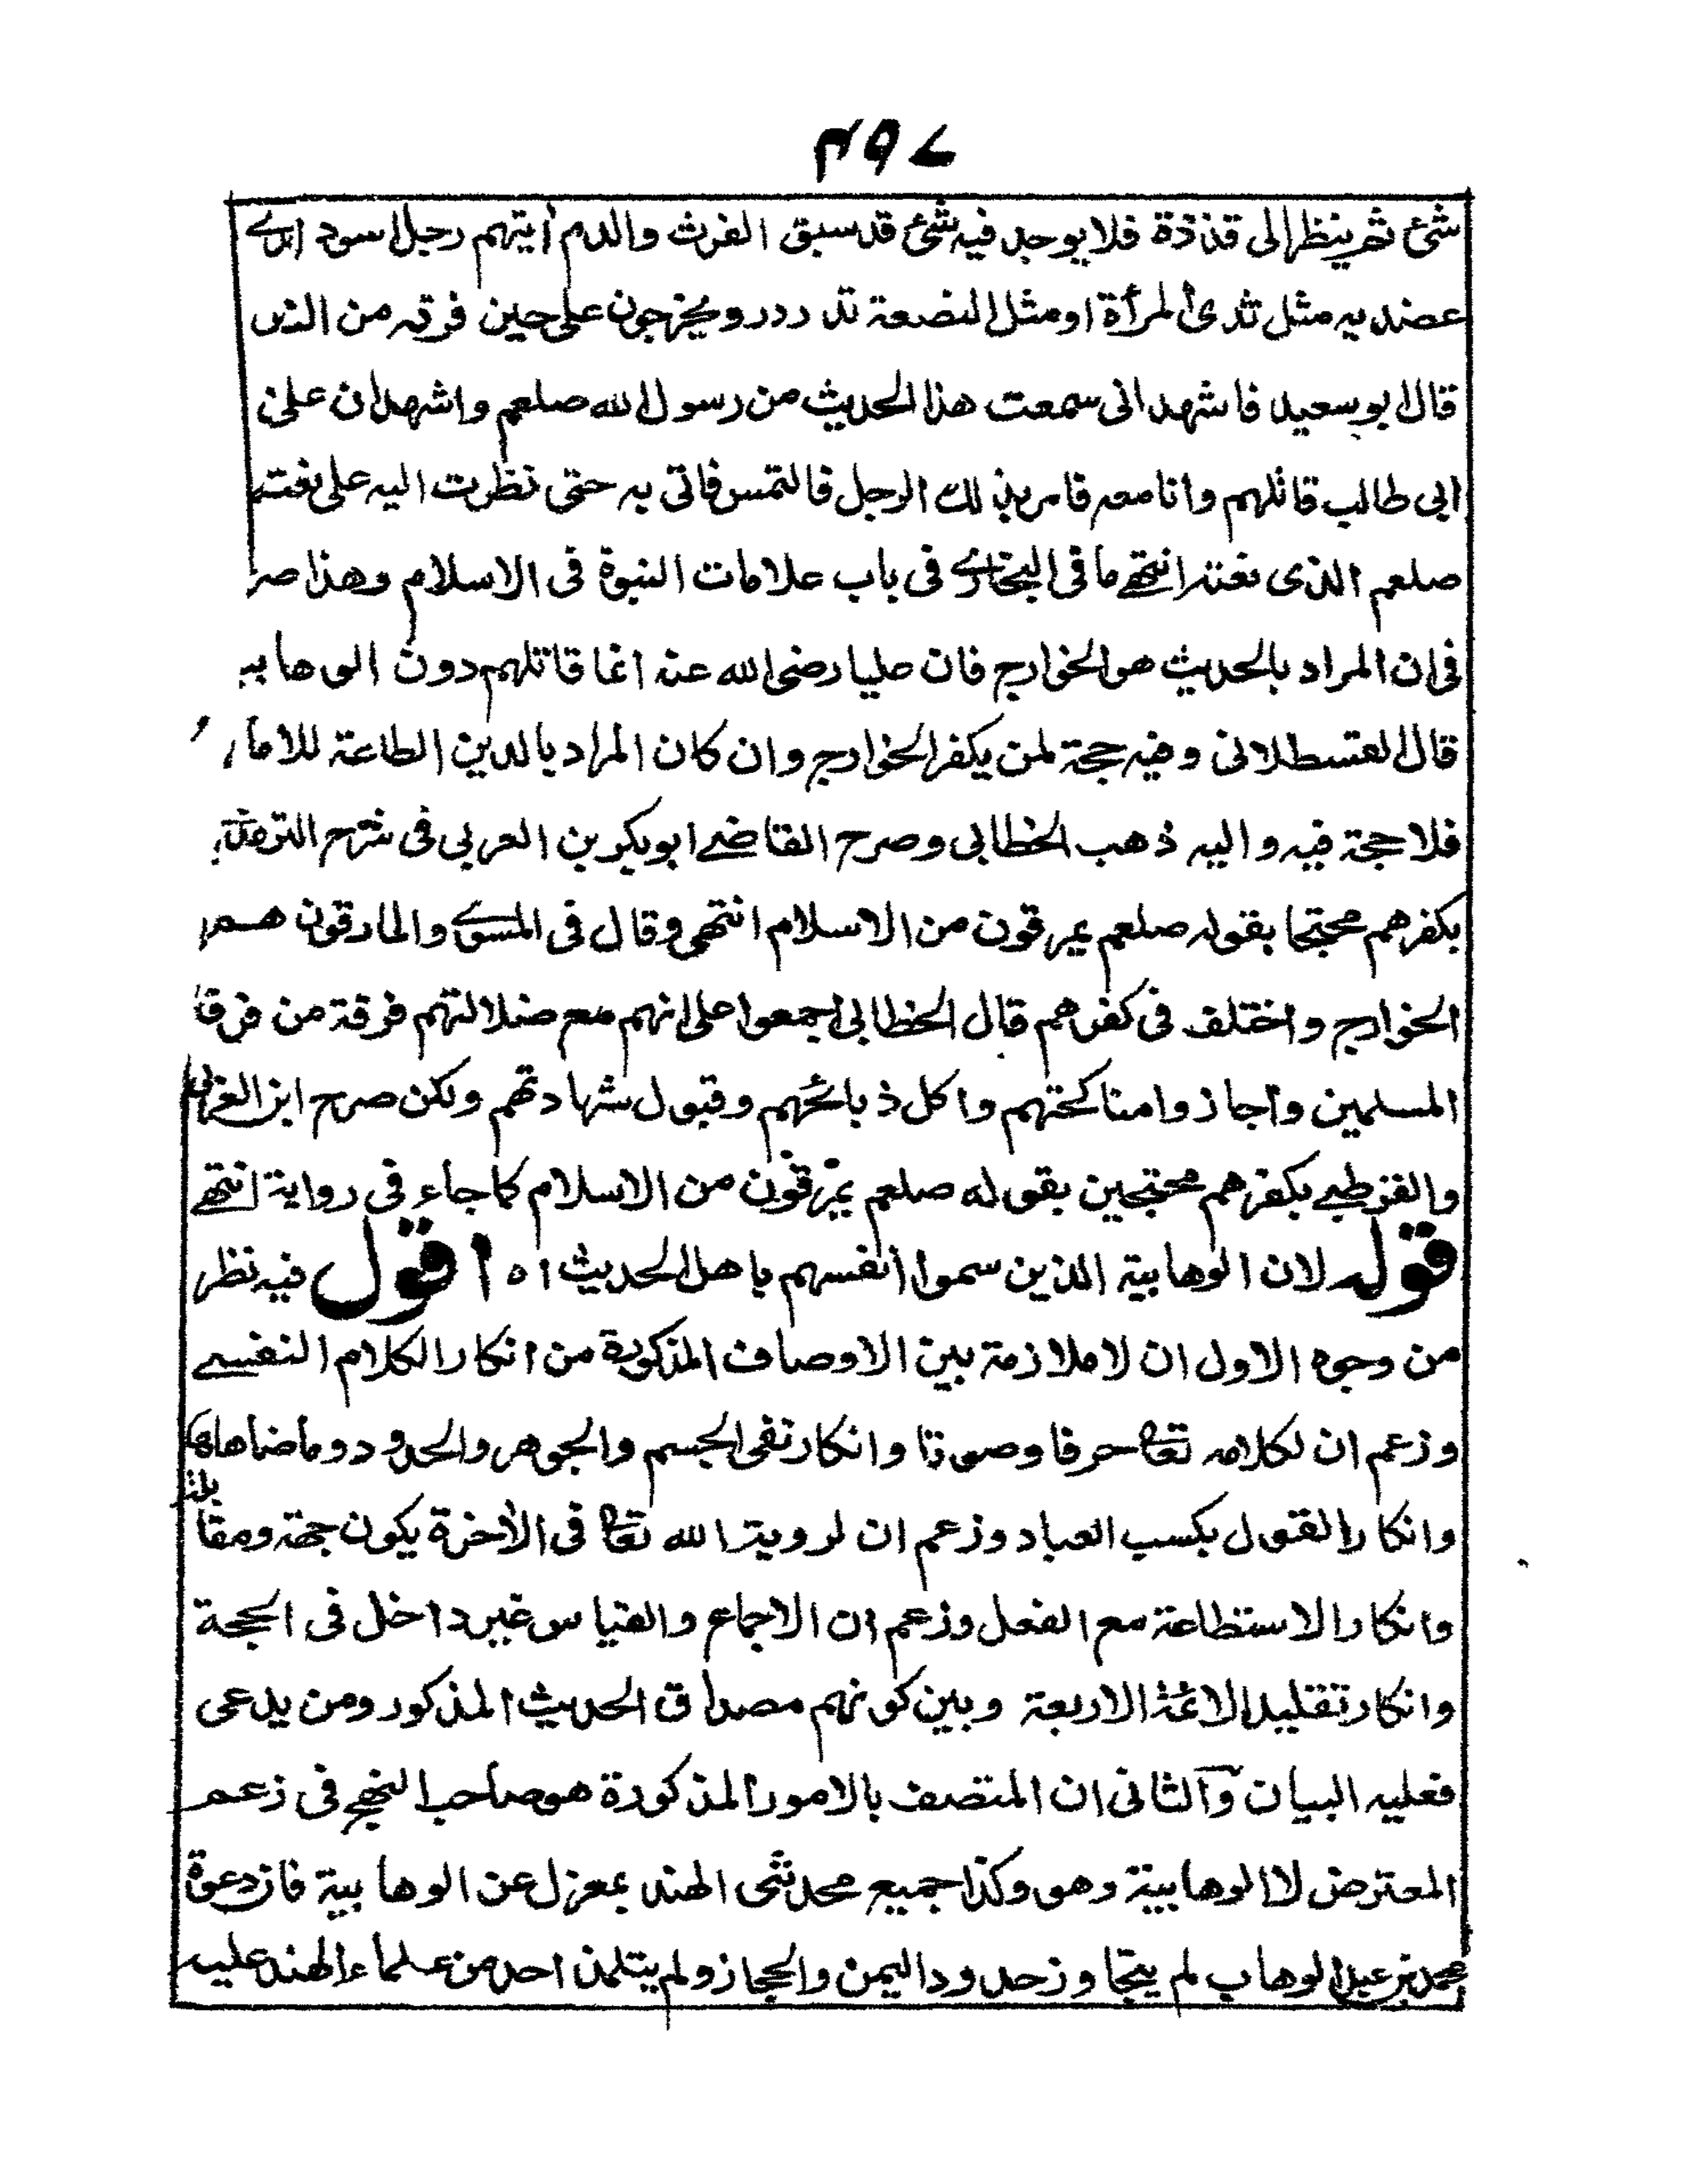 ٤٩٧
شئ ثم ينظر الى قذذة فلا يوجد فيه شئ قد سبق الفرث والدم ايتهم رجل اسود احدى
عضديه مثل ثدى المرأة او مثل البضعة تدردر ويخرجون على حين فرقه من الناس
قال ابو سعيد فاشهد انى سمعت هذا الحديث من رسول الله صلعم واشهد ان على بن
ابى طالب قاتلهم وانا معه فامر بذلك الرجل فالتمس فاتى به حتى نظرت اليه على نعت
صلعم الذى نعته انتهے ما فى البخارے فى باب علامات النبوة فى الاسلام وهذا صر
فى ان المراد بالحديث هو الخوارج فان عليا رضى الله عنه انما قاتلهم دون الوهابيه
قال القسطلانى وفيه حجة لمن يكفر الخوارج وان كان المراد بالدين الطاعة للامام
فلا حجة فيه واليه ذهب الخطابى وصرح القاضے ابو بكر بن العربى فى شرح الترمذى
بكفرهم محتجا بقوله صلعم يمرقون من الاسلام انتهى وقال فى المسوے والمارقون هم
الخوارج واختلف فى كفرهم قال الخطابى اجمعوا على انهم مع ضلالتهم فرقة من فرق
المسلمين واجازوا مناكحتهم واكل ذبائحهم وقبول شهادتهم ولكن صرح ابن العربى
والقرطبے بكفرهم محتجين بقوله صلعم يمرقون من الاسلام كما جاء فى رواية انتهے
قوله لان الوهابية الذين سموا انفسهم باهل الحديث اه اقول فيه نظر
من وجوه الاول ان لا ملازمة بين الاوصاف المذكورة من انكار الكلام النفسے
وزعم ان لكلامه تعالى حرفا وصوتا وانكار نفى الجسم والجوهر والحدود وما ضاهاها
وانكار القول بكسب العباد وزعم ان لروية الله تعالى فى الآخرة يكون جهة ومقابلة
وانكار الاستطاعة مع الفعل وزعم ان الاجماع والقياس غير داخل فى الحجة
وانكار تقليد الائمة الاربعة وبين كونهم مصداق الحديث المذكور ومن يدعى
فعليه البيان والثانى ان المتصف بالامور المذكورة هو صاحب النهج فى زعم
المعترض لا الوهابية وهو وكذا جميع محدثى الهند بمعزل عن الوهابية فان دعوة
محمد بن عبد الوهاب لم يتجاوز حدود اليمن والحجاز ولم يتلمذ احد من علماء الهند عليه